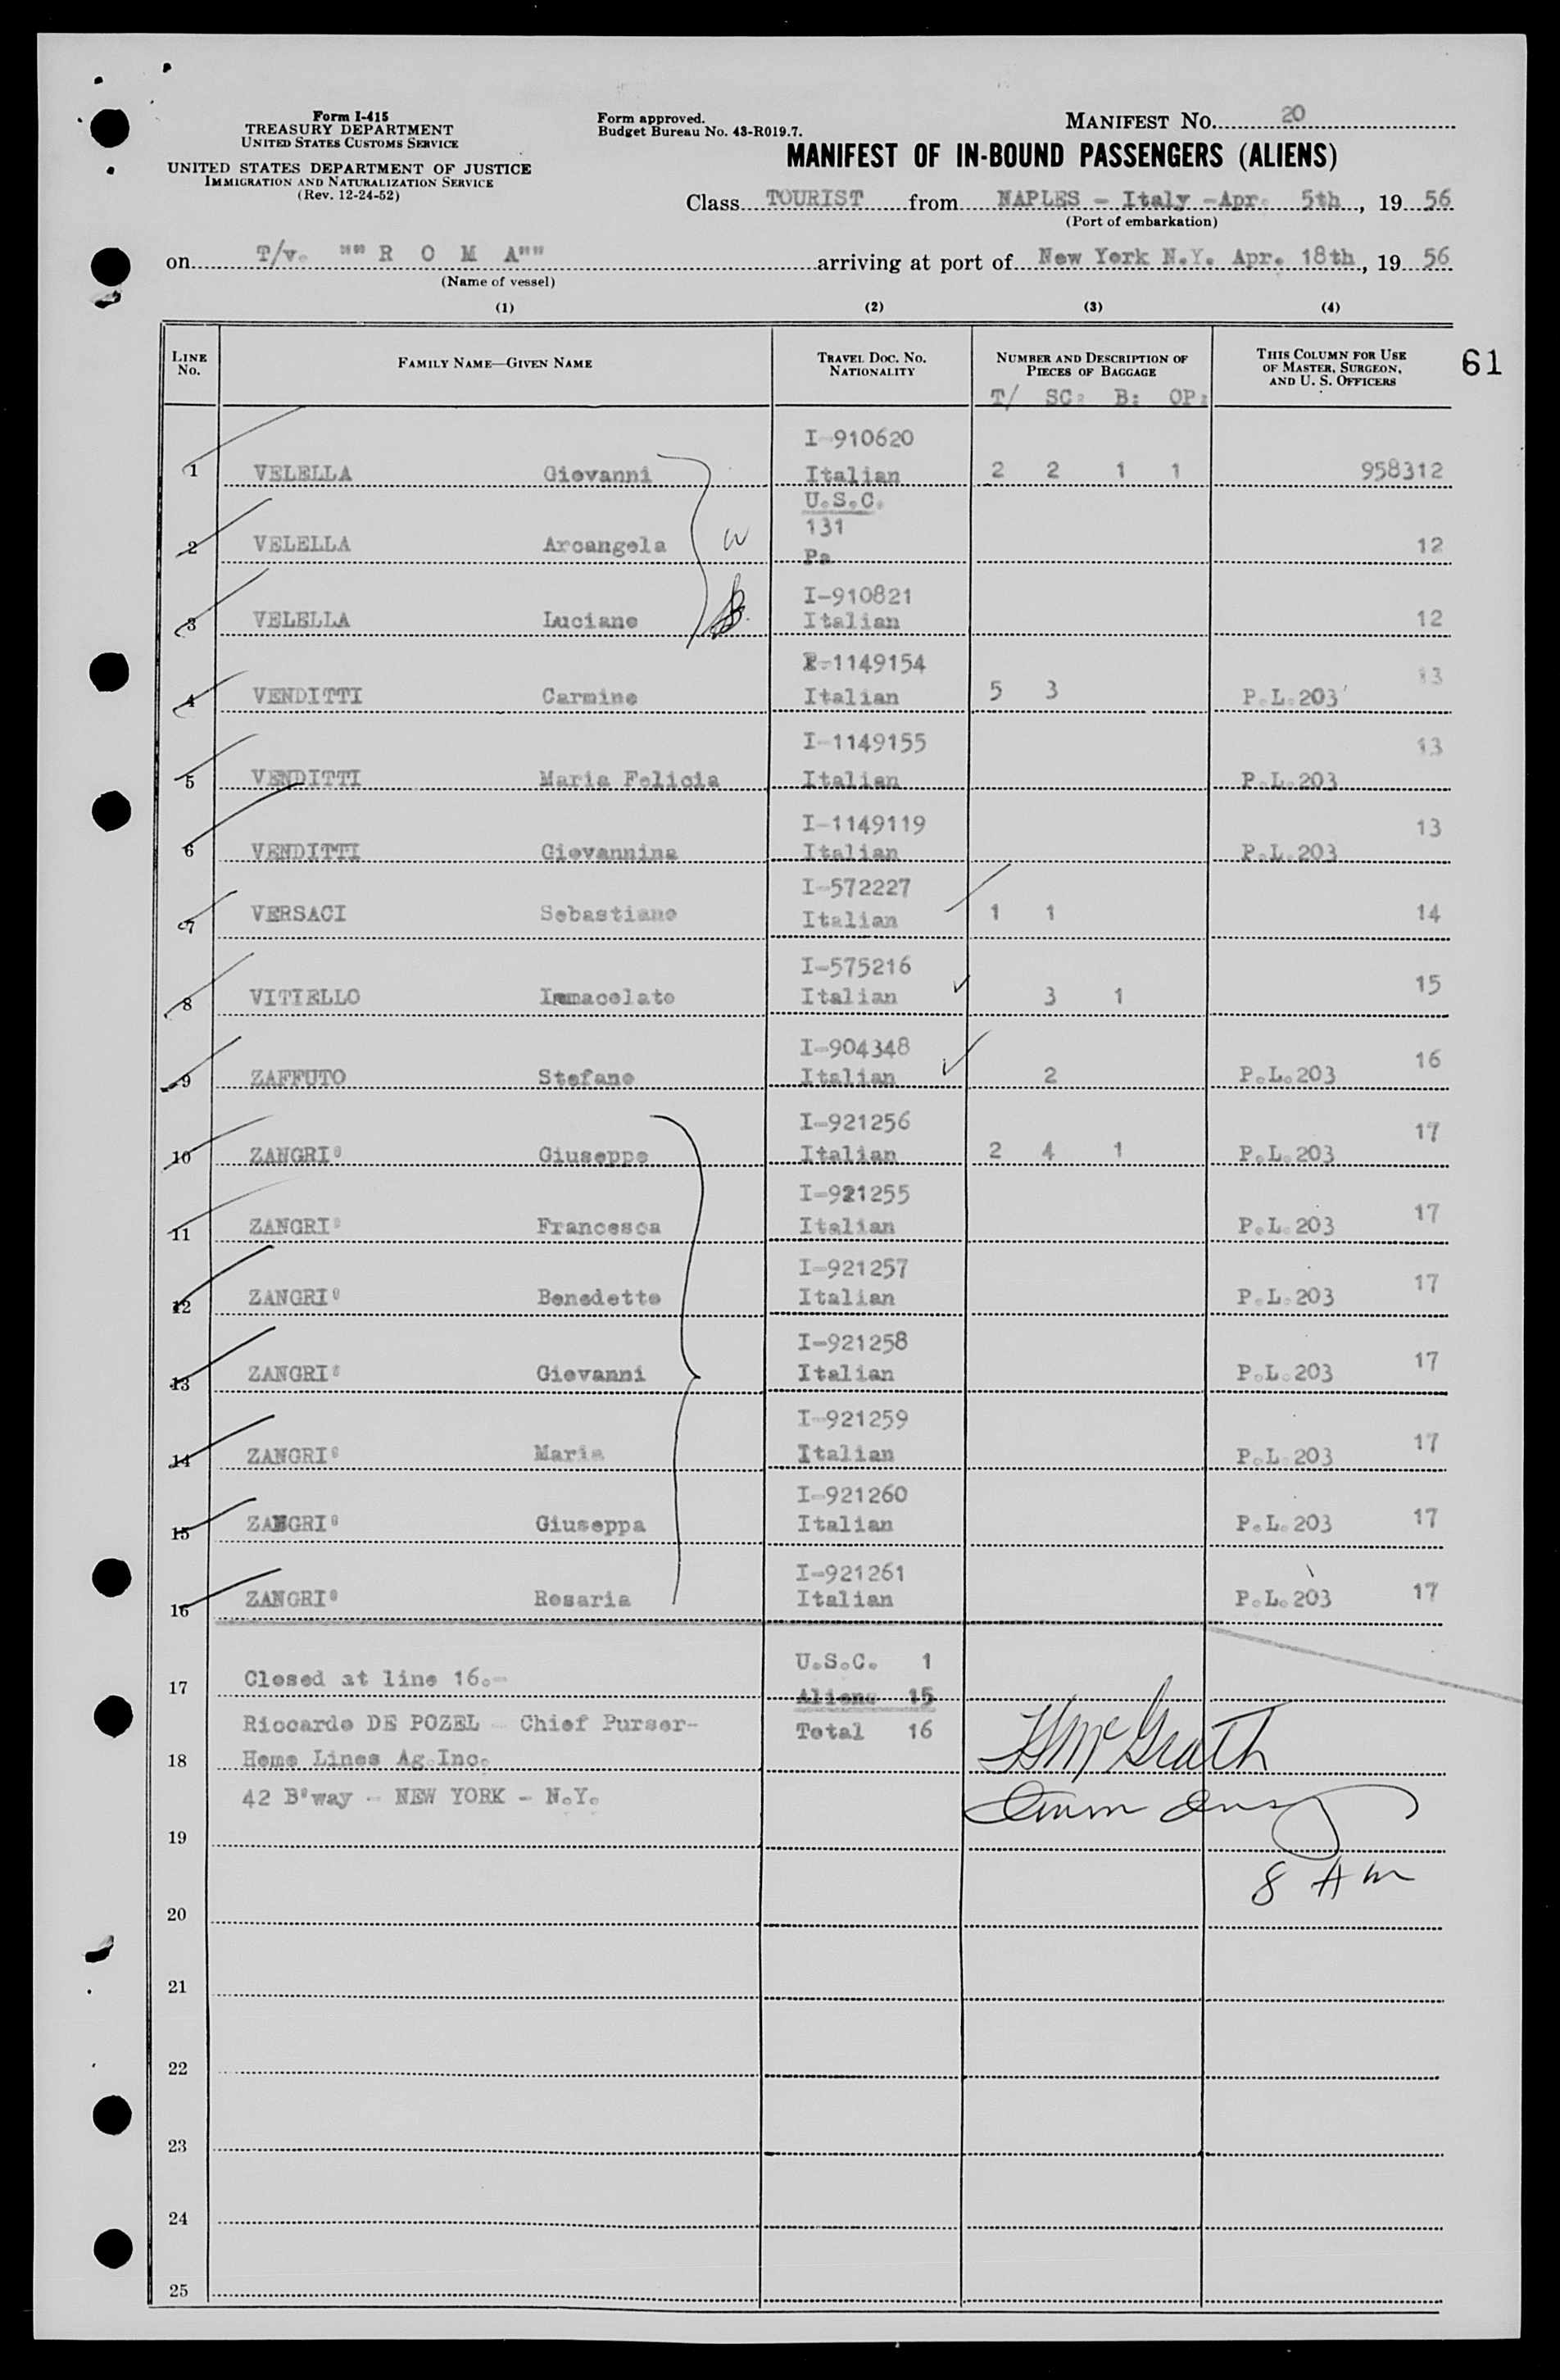 Form I-415
TREASURY DEPARTMENT
UNITED STATES CUSTOMS SERVICE
UNITED STATES DEPARTMENT OF JUSTICE
IMMIGRATION AND NATURALIZATION SERVICE
(Rev. 12-24-52)
Form approved.
Budget Bureau No. 43-R019.7.
MANIFEST NO. 20
MANIFEST OF IN-BOUND PASSENGERS (ALIENS)
Class TOURIST from NAPLES - Italy -Apr. 5th, 19 56
(Port of embarkation)
on T/v. """ R O M A"" arriving at port of New York N.Y. Apr. 18th, 19 56
(Name of vessel)
(1) (2) (3) (4)
LINE No. FAMILY NAME—GIVEN NAME TRAVEL DOC. NO. NATIONALITY NUMBER AND DESCRIPTION OF PIECES OF BAGGAGE THIS COLUMN FOR USE OF MASTER, SURGEON, AND U. S. OFFICERS 61
T/ SC: B: OP:
I-910620
1 VELELLA Giovanni Italian 2 2 1 1 958312
U.S.C.
131
2 VELELLA Arcangela Pa 12
W
I-910821
3 VELELLA Luciano Italian 12
I-1149154
4 VENDITTI Carmine Italian 5 3 P.L.203 13
I-1149155
5 VENDITTI Maria Felicia Italian P.L.203 13
I-1149119
6 VENDITTI Giovannina Italian P.L.203 13
I-572227
7 VERSACI Sebastiano Italian 1 1 14
I-575216
8 VITIELLO Immacolato Italian 3 1 15
I-904348
9 ZAFFUTO Stefano Italian 2 P.L.203 16
I-921256
10 ZANGRI' Giuseppe Italian 2 4 1 P.L.203 17
I-921255
11 ZANGRI' Francesca Italian P.L.203 17
I-921257
12 ZANGRI' Benedetto Italian P.L.203 17
I-921258
13 ZANGRI' Giovanni Italian P.L.203 17
I-921259
14 ZANGRI' Maria Italian P.L.203 17
I-921260
15 ZANGRI' Giuseppa Italian P.L.203 17
I-921261
16 ZANGRI' Rosaria Italian P.L.203 17
U.S.C. 1
17 Closed at line 16.-
Aliens 15
Riccardo DE POZEL - Chief Purser-
Total 16
HMcGrath
18 Home Lines Ag.Inc.
42 B'way - NEW YORK - N.Y.
19
8 AM
20
21
22
23
24
25